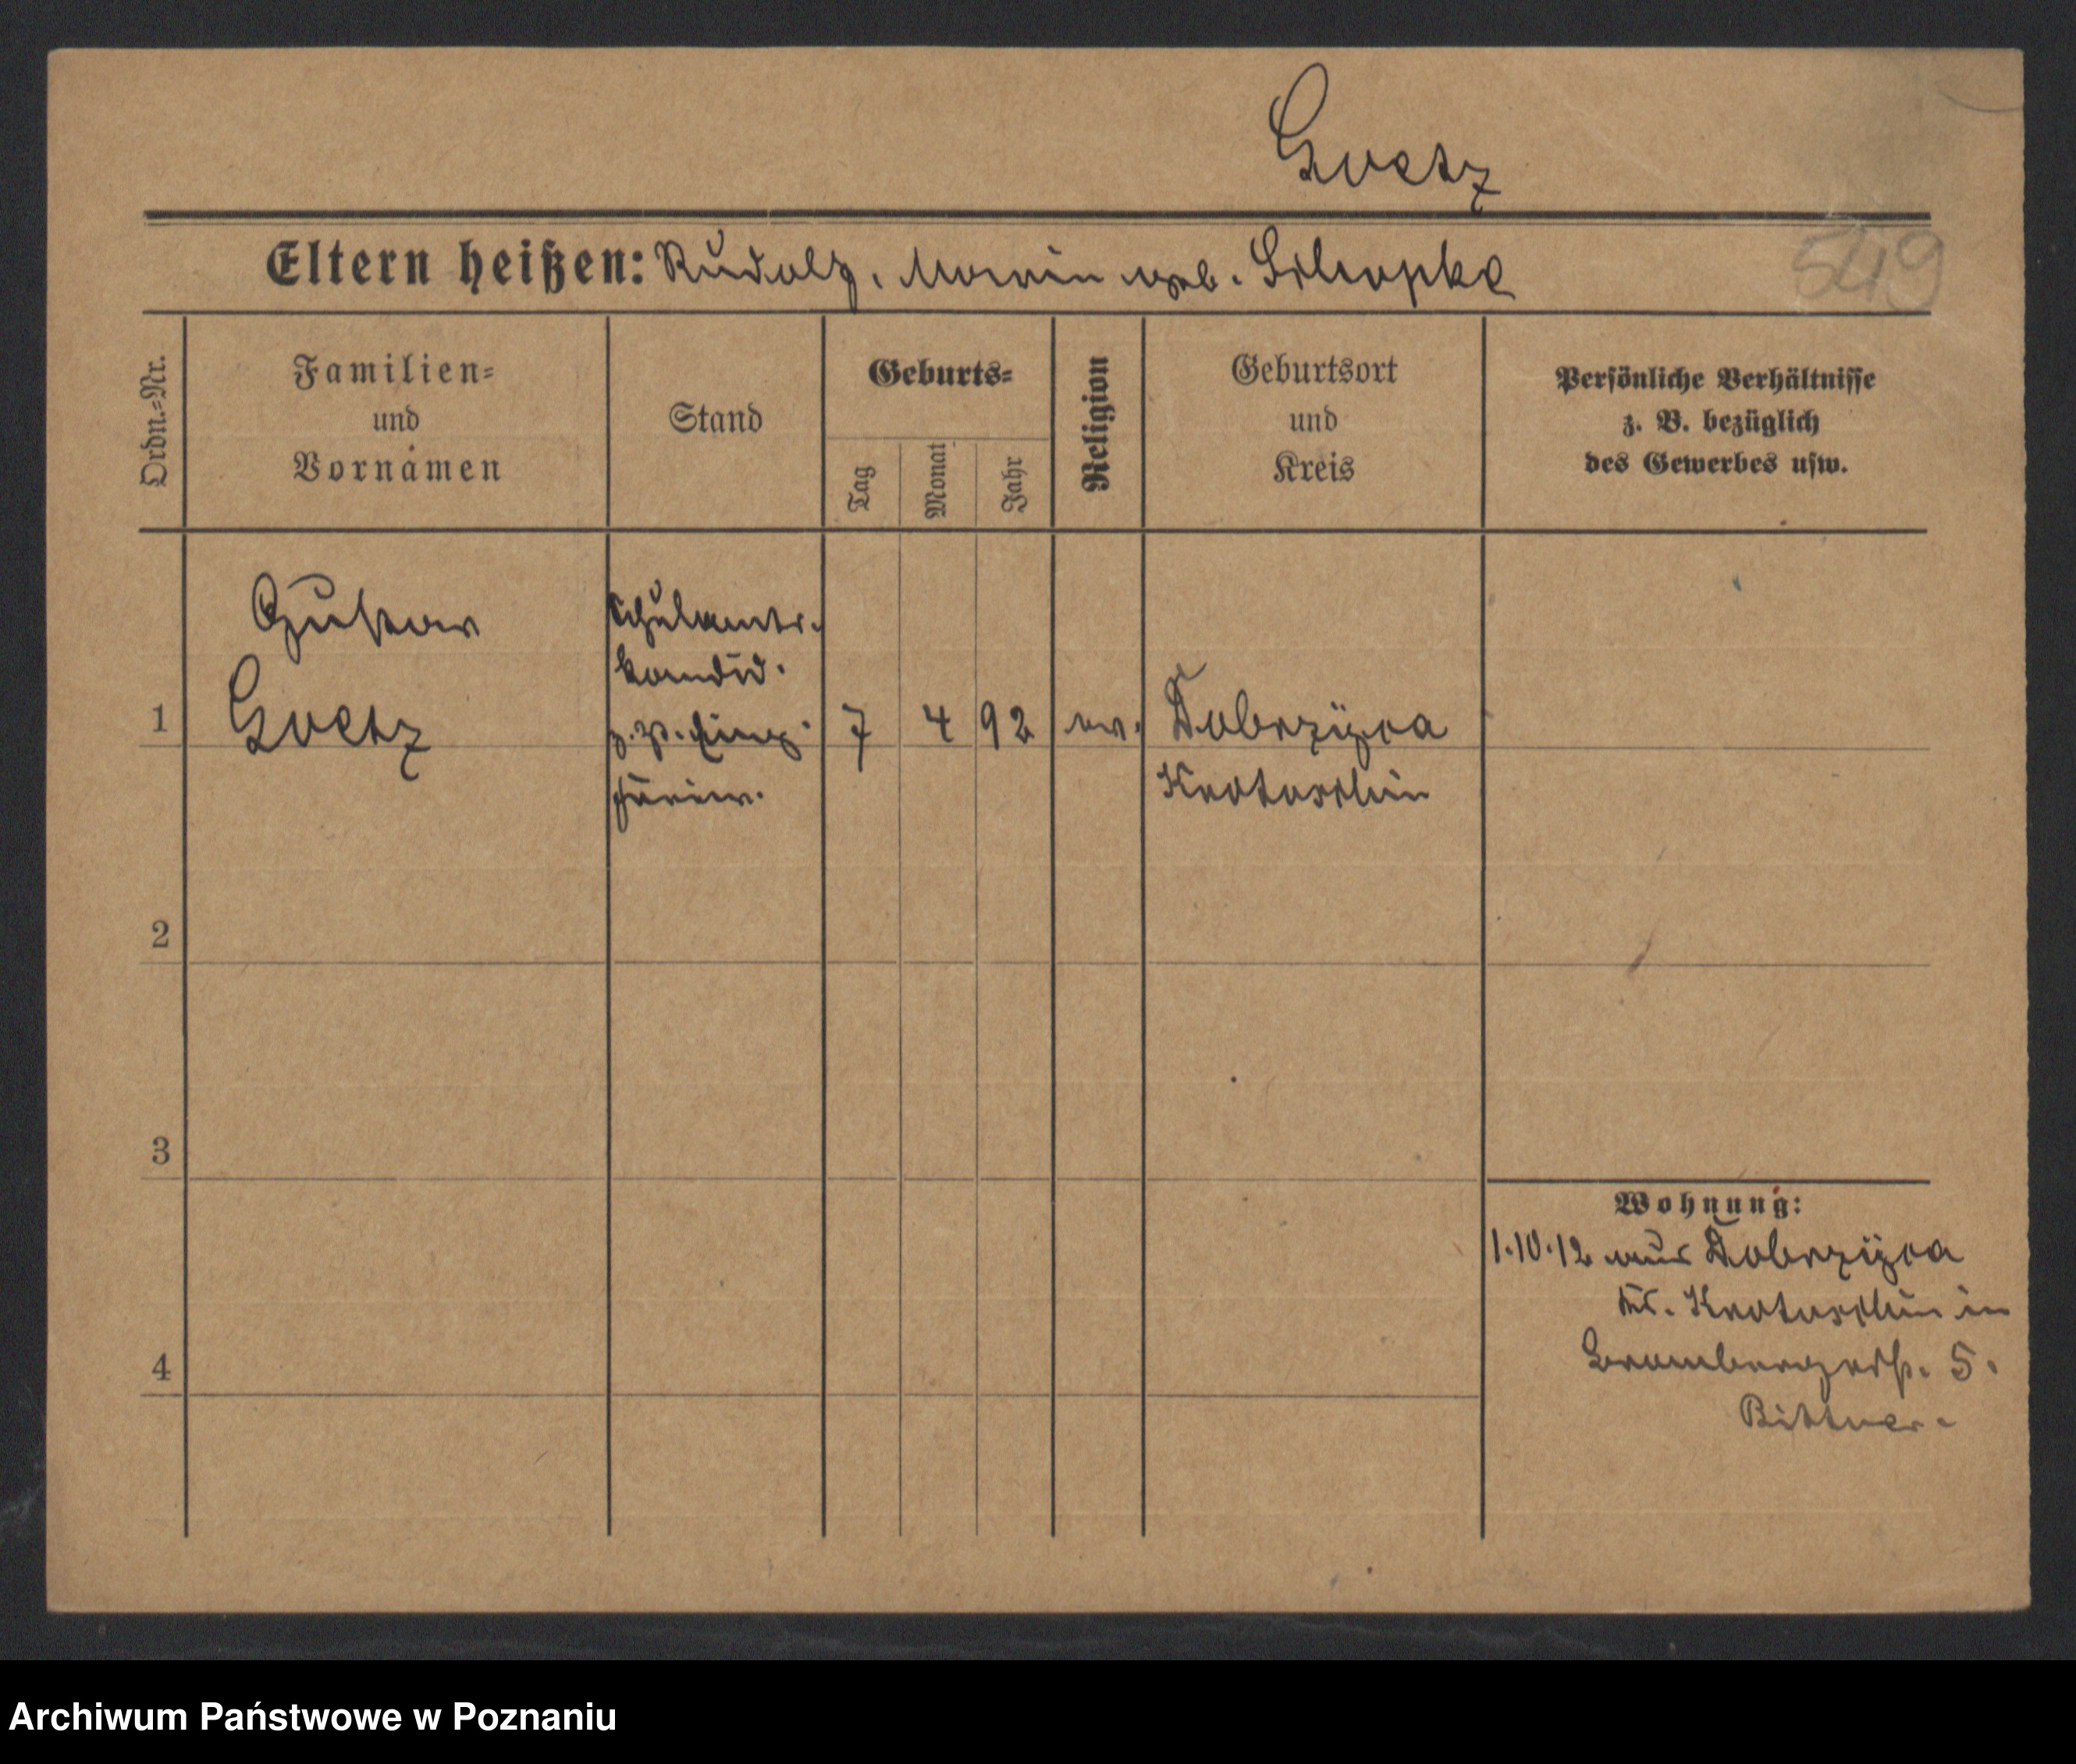 Goetz
Eltern heißen: Rudolf, Maria geb. Schopke
549
Ordn.=Nr.
Familien=
und
Vornamen
Stand
Geburts=
Tag
Monat
Jahr
Religion
Geburtsort
und
Kreis
Persönliche Verhältnisse
z. B. bezüglich
des Gewerbes usw.
Gustav
Goetz
Schulamts.
kandid.
z. Zt. Einj.
1
7
4
92
ev.
Dobrzyca
Krotoschin
2
3
4
Wohnung:
1.10.12 aus Dobrzyca
Kr. Krotoschin in
Brombergerstr. 5.
Bittner.
Archiwum Państwowe w Poznaniu